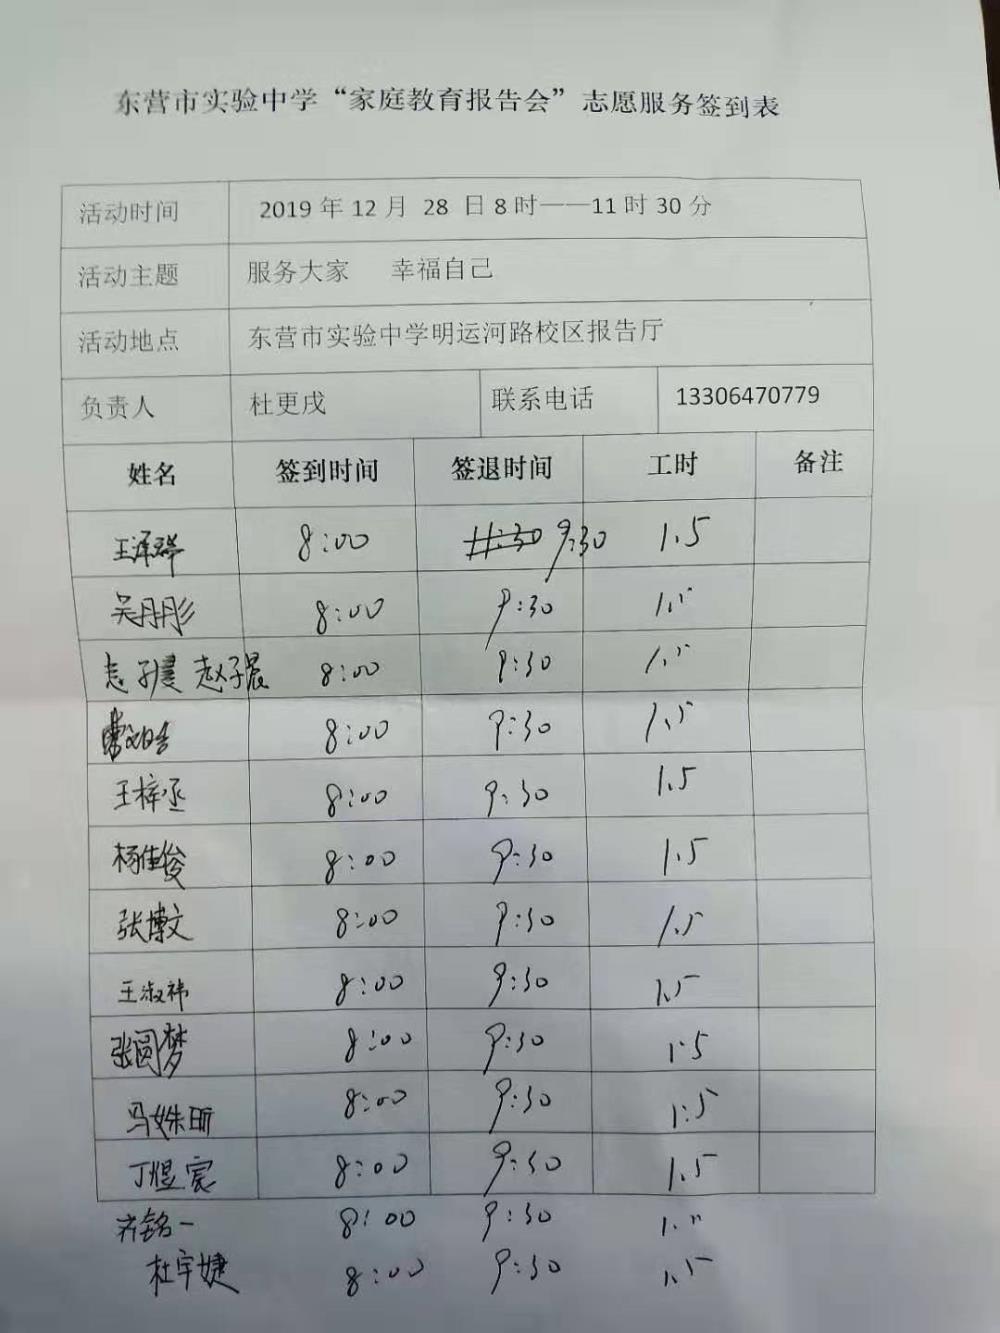 东营市实验中学“家庭教育报告会”志愿服务签到表
活动时间 2019 年 12 月 28 日 8 时——11 时 30 分
活动主题 服务大家 幸福自己
活动地点 东营市实验中学明运河路校区报告厅
负责人 杜更戌 联系电话 13306470779
姓名 签到时间 签退时间 工时 备注
王泽群 8:00 11:30 9:30 1.5
吴丹彤 8:00 9:30 1.5
赵子晨 8:00 9:30 1.5
8:00 9:30 1.5
王梓丞 8:00 9:30 1.5
杨佳俊 8:00 9:30 1.5
张博文 8:00 9:30 1.5
王淑祎 8:00 9:30 1.5
张圆梦 8:00 9:30 1.5
冯姝昕 8:00 9:30 1.5
丁煜宸 8:00 9:30 1.5
齐铭一 8:00 9:30 1.5
杜宇婕 8:00 9:30 1.5